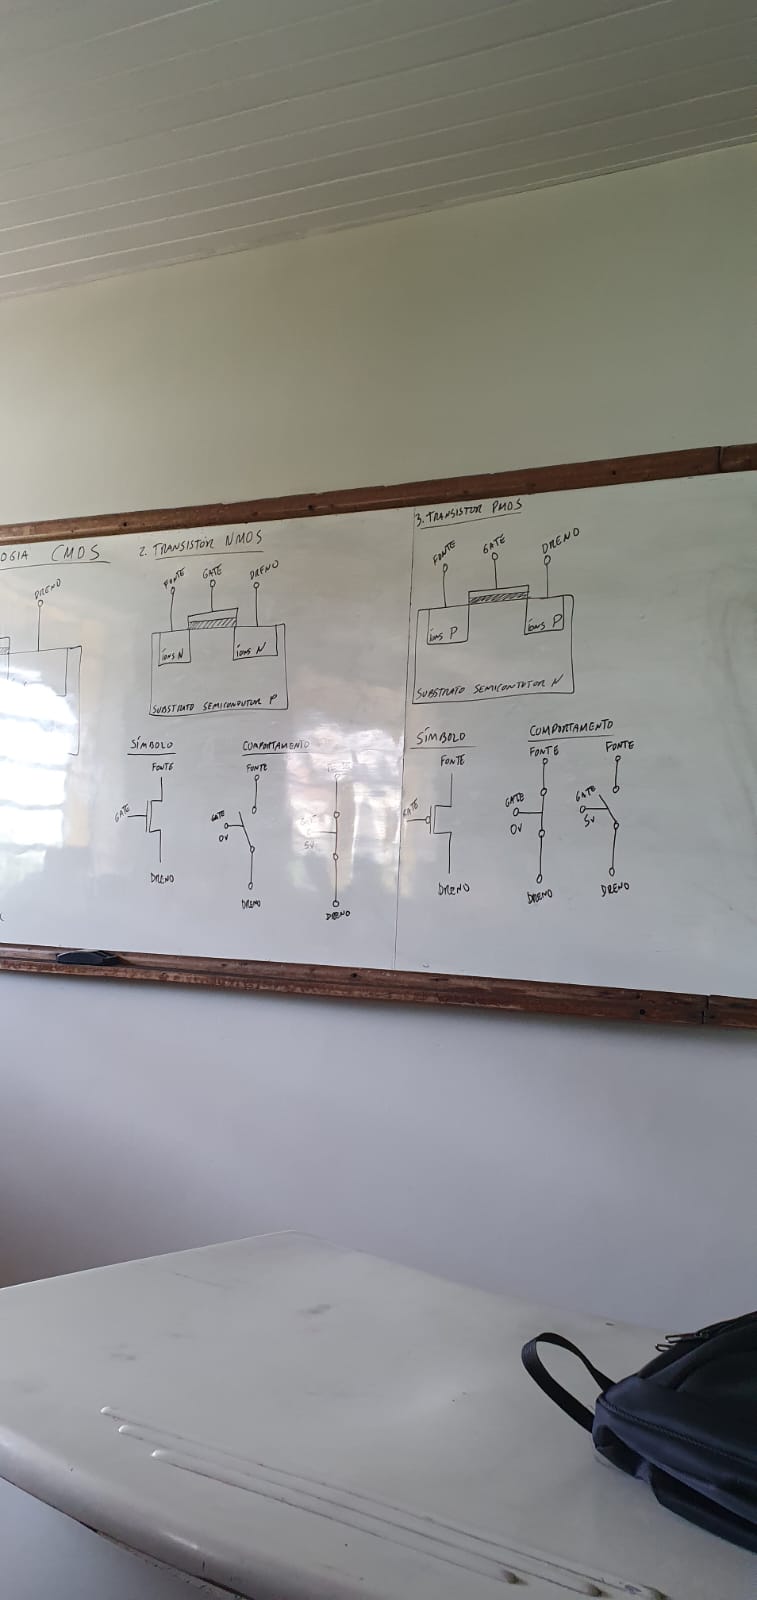 OGIA CMOS
DRENO
2. TRANSISTOR NMOS
FONTE GATE DRENO
íONS N íONS N
SUBSTRATO SEMICONDUTOR P
SÍMBOLO
FONTE
GATE
DRENO
COMPORTAMENTO
FONTE
GATE
0V
DRENO
5V
DRENO
3. TRANSISTOR PMOS
FONTE GATE DRENO
íONS P íONS P
SUBSTRATO SEMICONTUTOR N
SÍMBOLO
FONTE
GATE
DRENO
COMPORTAMENTO
FONTE FONTE
GATE GATE
0V 5V
DRENO DRENO